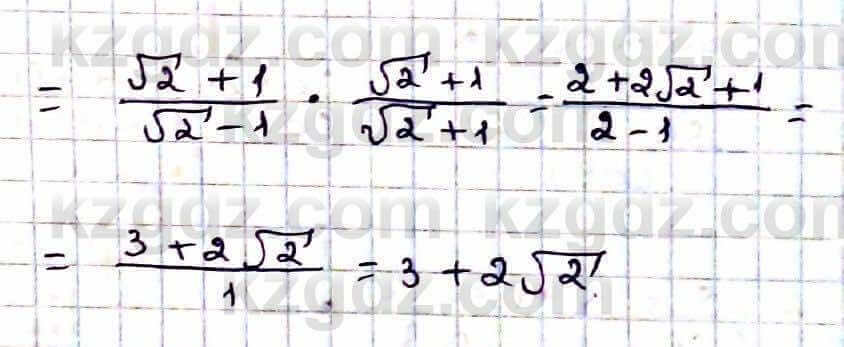 = (√2 + 1)/(√2 - 1) · (√2 + 1)/(√2 + 1) = (2 + 2√2 + 1)/(2 - 1) =
= (3 + 2√2)/1 = 3 + 2√2.
kzgdz.com kzgdz.com
kzgdz.com
kzgdz.com kzgdz.com
kzgdz.com